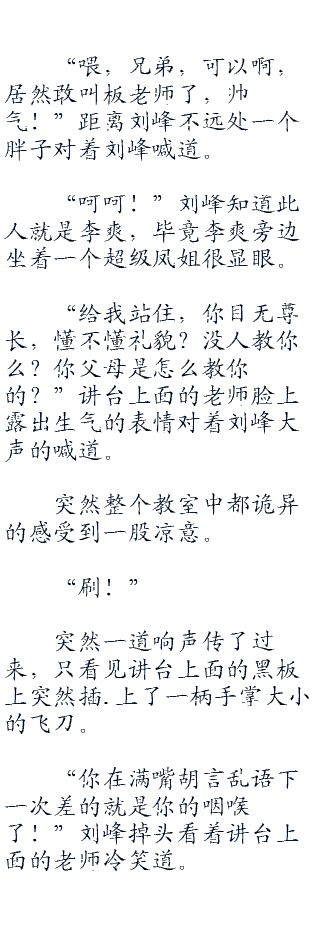 “喂，兄弟，可以啊，
居然敢叫板老师了，帅
气！”距离刘峰不远处一个
胖子对着刘峰喊道。
“呵呵！”刘峰知道此
人就是李爽，毕竟李爽旁边
坐着一个超级凤姐很显眼。
“给我站住，你目无尊
长，懂不懂礼貌？没人教你
么？你父母是怎么教你
的？”讲台上面的老师脸上
露出生气的表情对着刘峰大
声的喊道。
突然整个教室中都诡异
的感受到一股凉意。
“刷！”
突然一道响声传了过
来，只看见讲台上面的黑板
上突然插.上了一柄手掌大小
的飞刀。
“你在满嘴胡言乱语下
一次差的就是你的咽喉
了！”刘峰掉头看着讲台上
面的老师冷笑道。